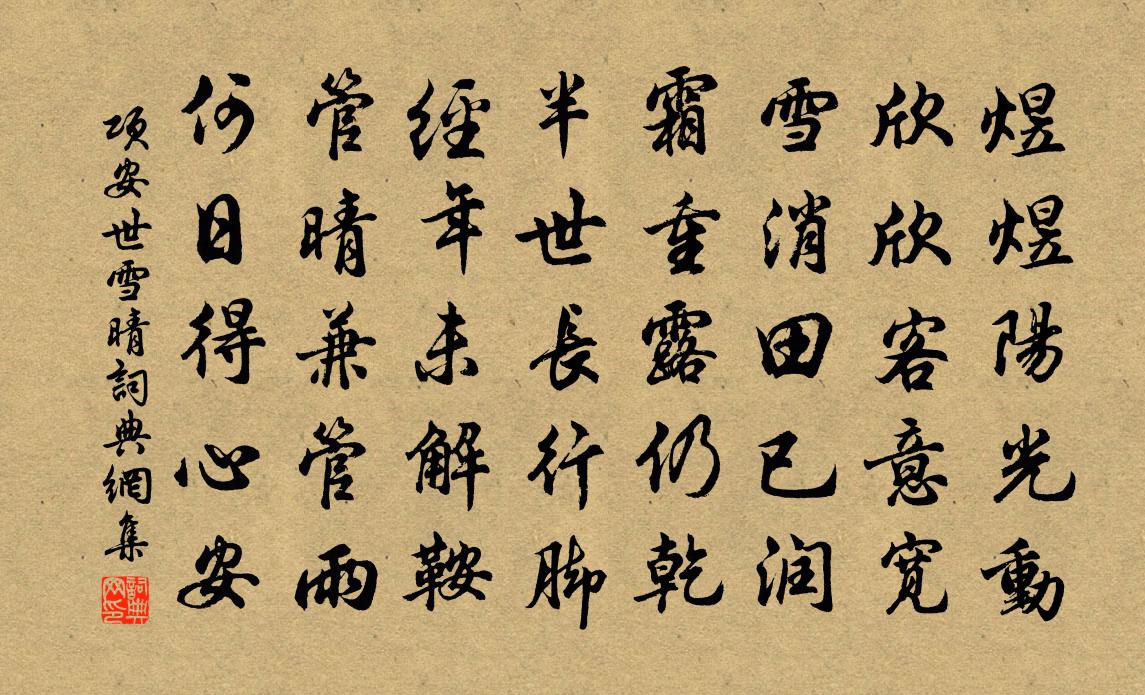 煜煜陽光動
欣欣客意寬
雪消田已润
霜重露仍乾
半世長行脚
經年未解鞍
管晴兼管雨
何日得心安
項安世雪晴詞典網集
詞典
网印